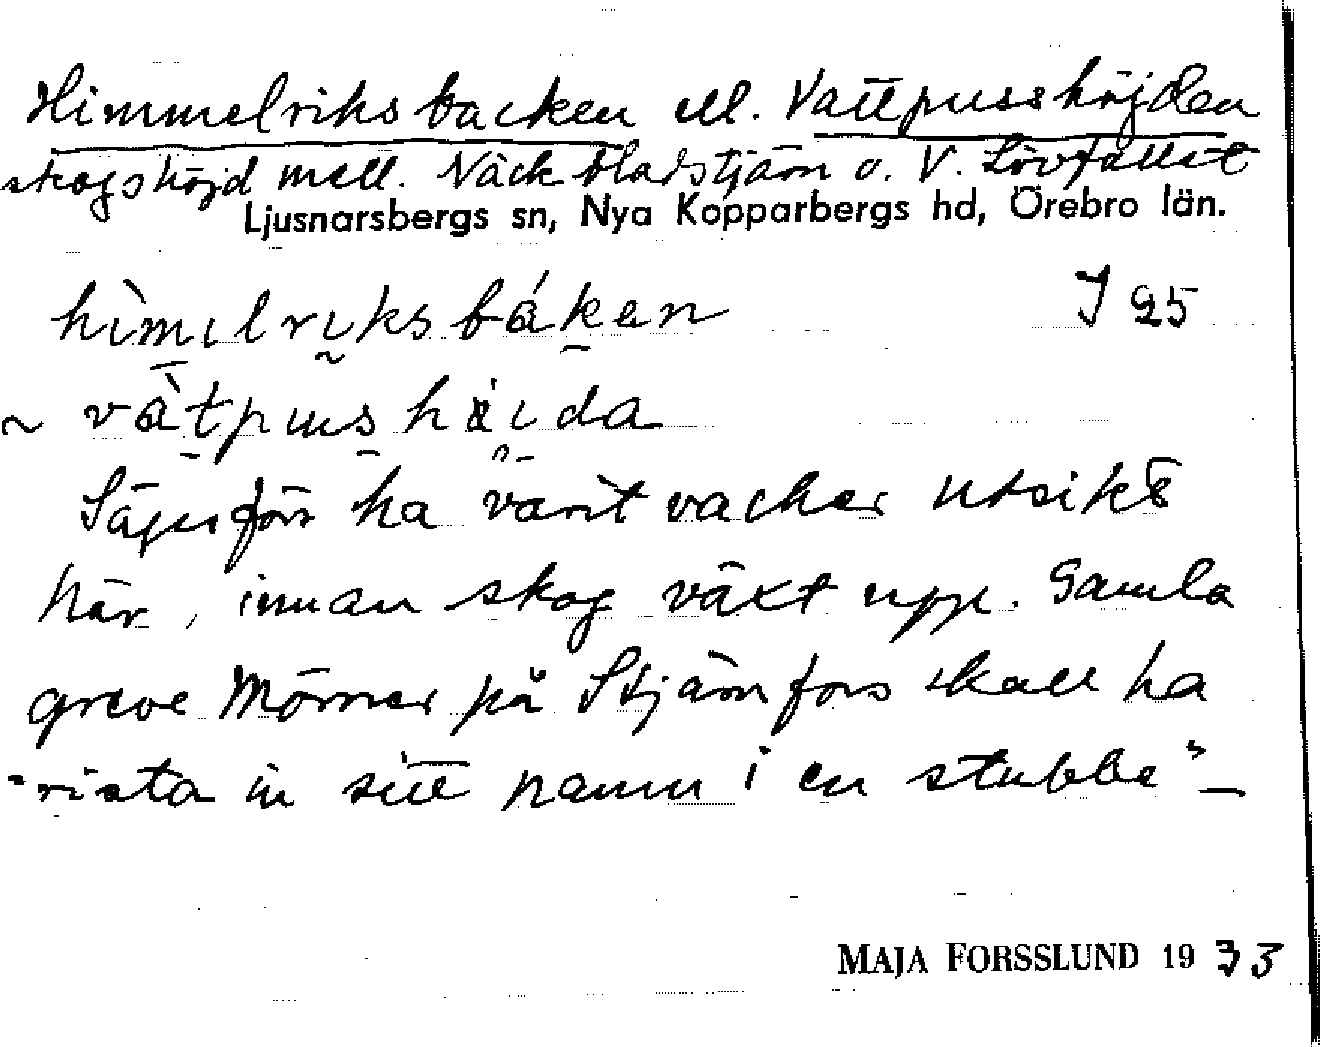 Himmelriksbacken ell. Vattpusshöjden
skogshöjd mell. Näckbladstjärn o. V. Lövfallet
Ljusnarsbergs sn, Nya Kopparbergs hd, Örebro län.
hìmılrıksbákan J 25
~ vàtpusháıda
Säges förr ha varit vacker utsikt
här, innan skog växt upp. Gamla
greve Mörner på Stjärnfors skall ha
"rista in sitt namn i en stubbe" –
MAJA FORSSLUND 1933